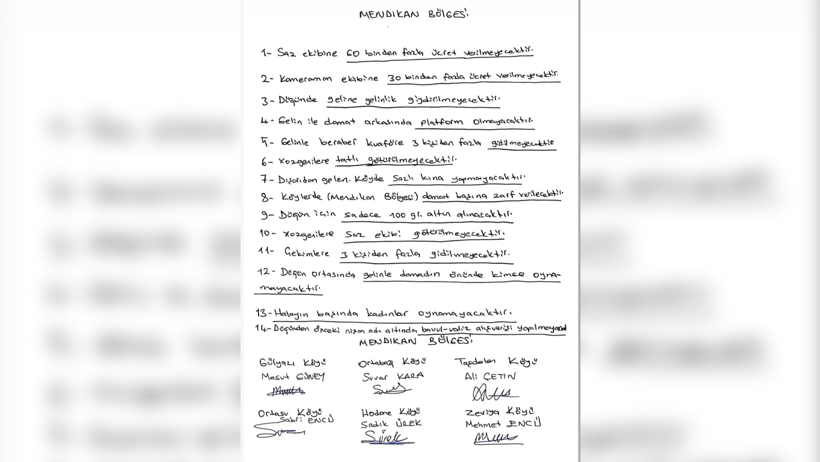 MENDIKAN BÖLGESİ
1- Saz ekibine 60 binden fazla ücret verilmeyecektir.
2- Kameraman ekibine 30 binden fazla ücret verilmeyecektir.
3- Düğünde geline gelinlik giydirilmeyecektir.
4- Gelin ile damat arkasında platform olmayacaktır.
5- Gelinle beraber kuaföre 3 kişiden fazla gidilmeyecektir
6- xozgenilere tatlı götürülmeyecektir.
7- Dışarıdan gelen. Köyde sazlı kına yapmayacaktır.
8- Köylerde (Mendikan Bölgesi) damat başına zarf verilecektir.
9- Düğün için sadece 100 gr. altın alınacaktır.
10- xozgenilere saz ekibi götürülmeyecektir.
11- Çekimlere 3 kişiden fazla gidilmeyecektir.
12- Degün ortasında gelinle damadın önünde kimse oyna-
mayacaktır.
13- Halayın başında kadınlar oynamayacaktır.
14- Düğünden önceki nişan adı altında bavul-valiz alışverişi yapılmayacak
MENDIKAN BÖLGESİ
Gülyazı Köyü Ortabağ Köyü Taşdelen Köyü
Mesut GÜNEY Suvar KARA Ali ÇETİN
Ortasu Köyü Hodane Köyü Zeviya Köyü
Sabri ENCÜ Sadık ÜREK Mehmet ENCÜ